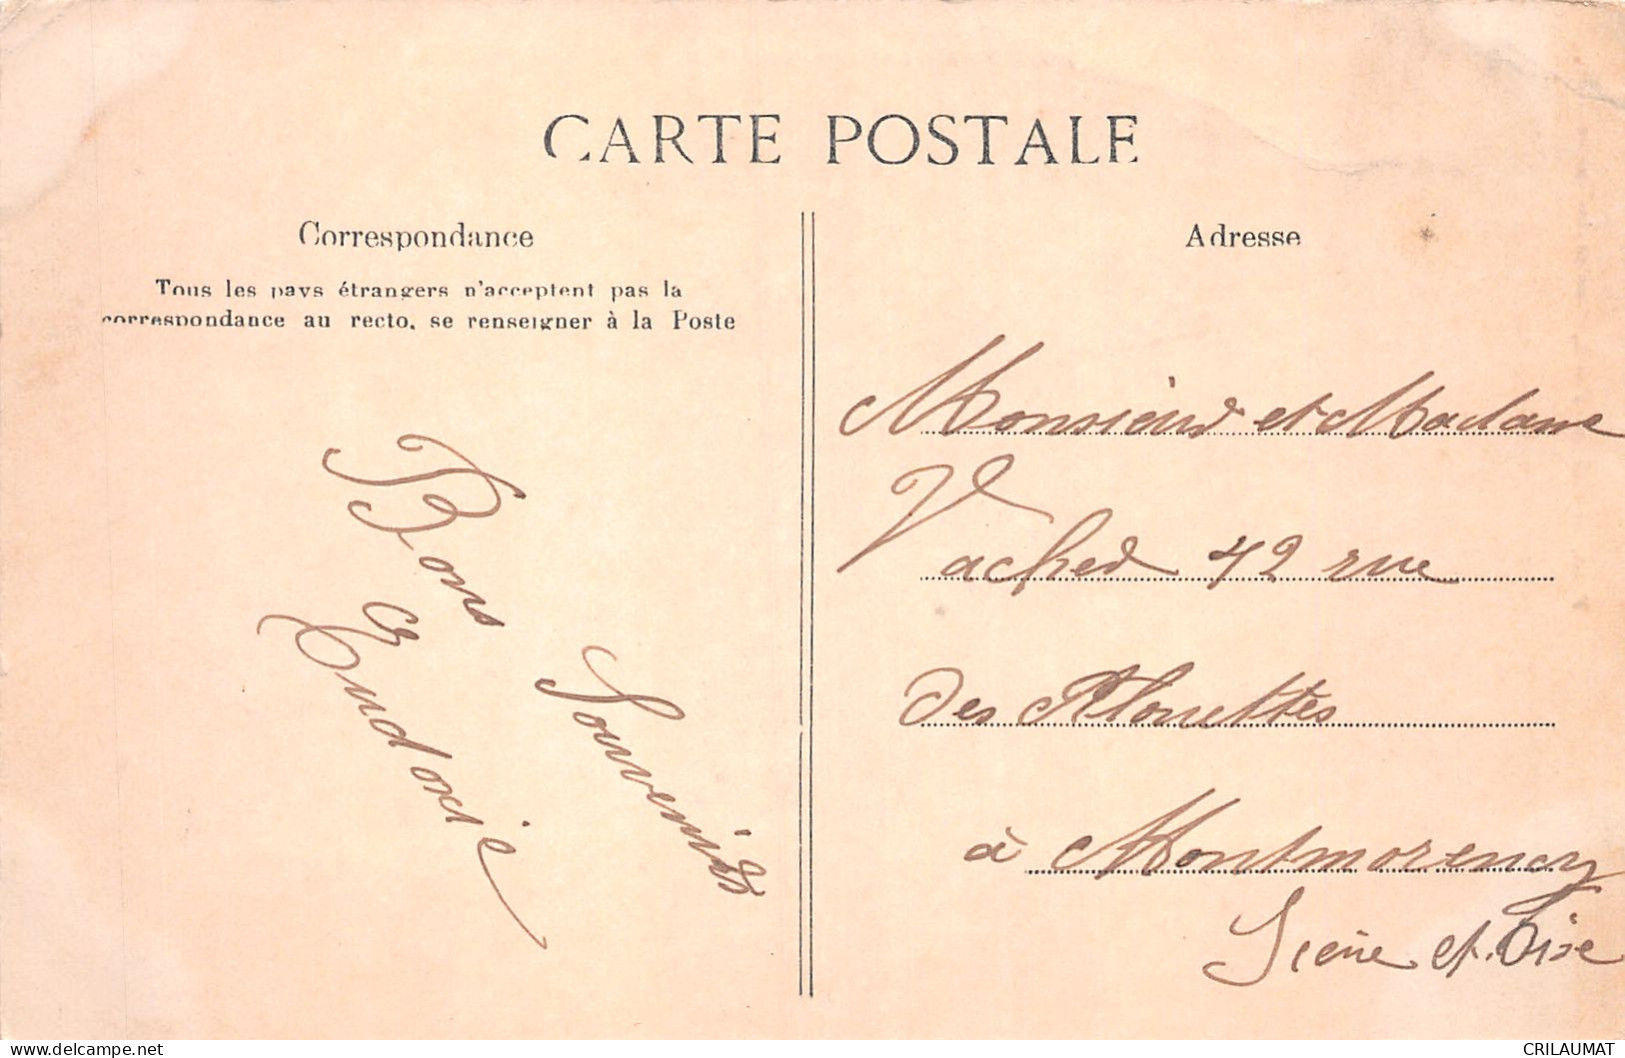 CARTE POSTALE
Correspondance
Tous les pays étrangers n'acceptent pas la
correspondance au recto, se renseigner à la Poste
Bons
Souvenirs
Eudoxie
Adresse
Monsieur et Madame
Vacher 42 rue
des Alouettes
à Montmorency
Seine et Oise
www.delcampe.net
CRILAUMAT